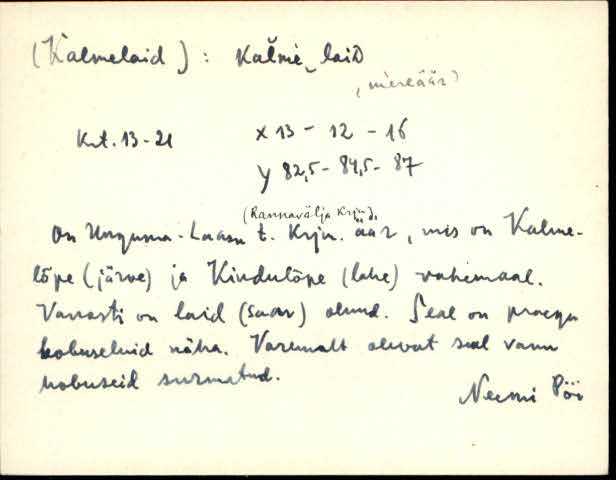 (Kalmelaid) : Kalme_laiD
(mereäär)
Krt. 13-21 x 13 - 12 - 16
y 82,5 - 84,5 - 87
(Rannavälja Krjn.)
On Unguma-Laasu t. Krjn. äär, mis on Kalme-
lõpe (järve) ja Kindulõpe (lahe) vahemaal.
Vanasti on laid (saar) olnud. Seal on praegu
hobuseluid näha. Varemalt olevat seal vanu
hobuseid surmatud.
Neemi